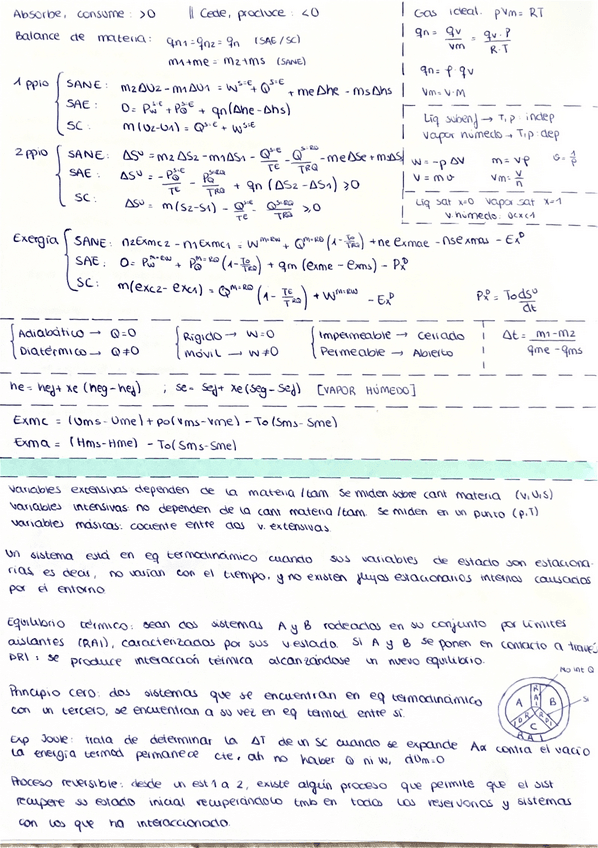 Absorbe, consume : >0 || Cede, produce : <0
Balance de materia: qn1 = qn2 = qn (SAE/SC)
m1+me = m2+ms (SANE)
Gas ideal. pVm = RT
qn = qv/vm = qv·P/R·T
qn = ρ·qv
Vm = V·M
1 ppio
SANE: m2ΔU2 - m1ΔU1 = W^S-E + Q^S-E + meΔhe - msΔhs
SAE: 0 = Pw^S-E + PQ^S-E + qn(Δhe - Δhs)
SC: m(U2-U1) = Q^S-E + W^S-E
Líq subenf → T, p : indep
Vapor húmedo → T, p : dep
2 ppio
SANE: ΔS^U = m2ΔS2 - m1ΔS1 - Q^S-E/TE - Q^S-RQ/TRQ - meΔSe + msΔS
SAE: ΔS^U = -PQ^S-E/TE - PQ^S-RQ/TRQ + qn (ΔS2 - ΔS1) ≥ 0
SC: ΔS^U = m(S2-S1) - Q^S-E/TE - Q^S-RQ/TRQ ≥ 0
W = -p ΔV m = Vρ
V = m v Vm = V/n
Líq sat x=0 vapor sat x=1
v. húmedo: 0<x<1
Exergía
SANE: n2Exmc2 - n1Exmc1 = W^M-RW + Q^M-RQ (1 - To/TRQ) + ne Exmae - ns Exmas - Ex^D
SAE: 0 = Pw^M-RW + PQ^M-RQ (1 - To/TRQ) + qm (exme - exms) - Px^D
SC: m(exc2 - exc1) = Q^M-RQ (1 - TE/TRQ) + W^M-RW - Ex^D
Px^D = To dS^U/dt
Adiabático → Q=0
Diatérmico → Q≠0
Rígido → W=0
Móvil → W≠0
Impermeable → Cerrado
Permeable → Abierto
Δt = m1-m2/qme-qms
he = hef + xe (heg - hef) ; se = sef + xe (seg - sef) [VAPOR HÚMEDO]
Exmc = (Ums - Ume) + po(Vms - Vme) - To (Sms - Sme)
Exma = (Hms - Hme) - To (Sms - Sme)
Variables extensivas dependen de la materia/tam. Se miden sobre cant materia (V,U,S)
Variables intensivas: no dependen de la cant materia/tam. Se miden en un punto (p,T)
Variables másicas: cociente entre dos v. extensivas.
Un sistema está en eq termodinámico cuando sus variables de estado son estaciona-
rias es decir, no varían con el tiempo, y no existen flujos estacionarios internos causados
por el entorno
Equilibrio térmico: sean dos sistemas A y B rodeados en su conjunto por límites
aislantes (RAI), caracterizados por sus v.estado. Si A y B se ponen en contacto a través
DRI : se produce interacción térmica alcanzándose un nuevo equilibrio.
No int Q
Principio cero: dos sistemas que se encuentran en eq termodinámico
con un tercero, se encuentran a su vez en eq termod entre sí.
A B C
RAI
Exp Joule: trata de determinar la ΔT de un SC cuando se expande Ax contra el vacío
la energía termod permanece cte, ah no haber Q ni W, dUm=0
Proceso reversible: desde un est 1 a 2, existe algún proceso que permite que el sist
recupere su estado inicial recuperándolo tmb en todos los reservorios y sistemas
con los que ha interaccionado.